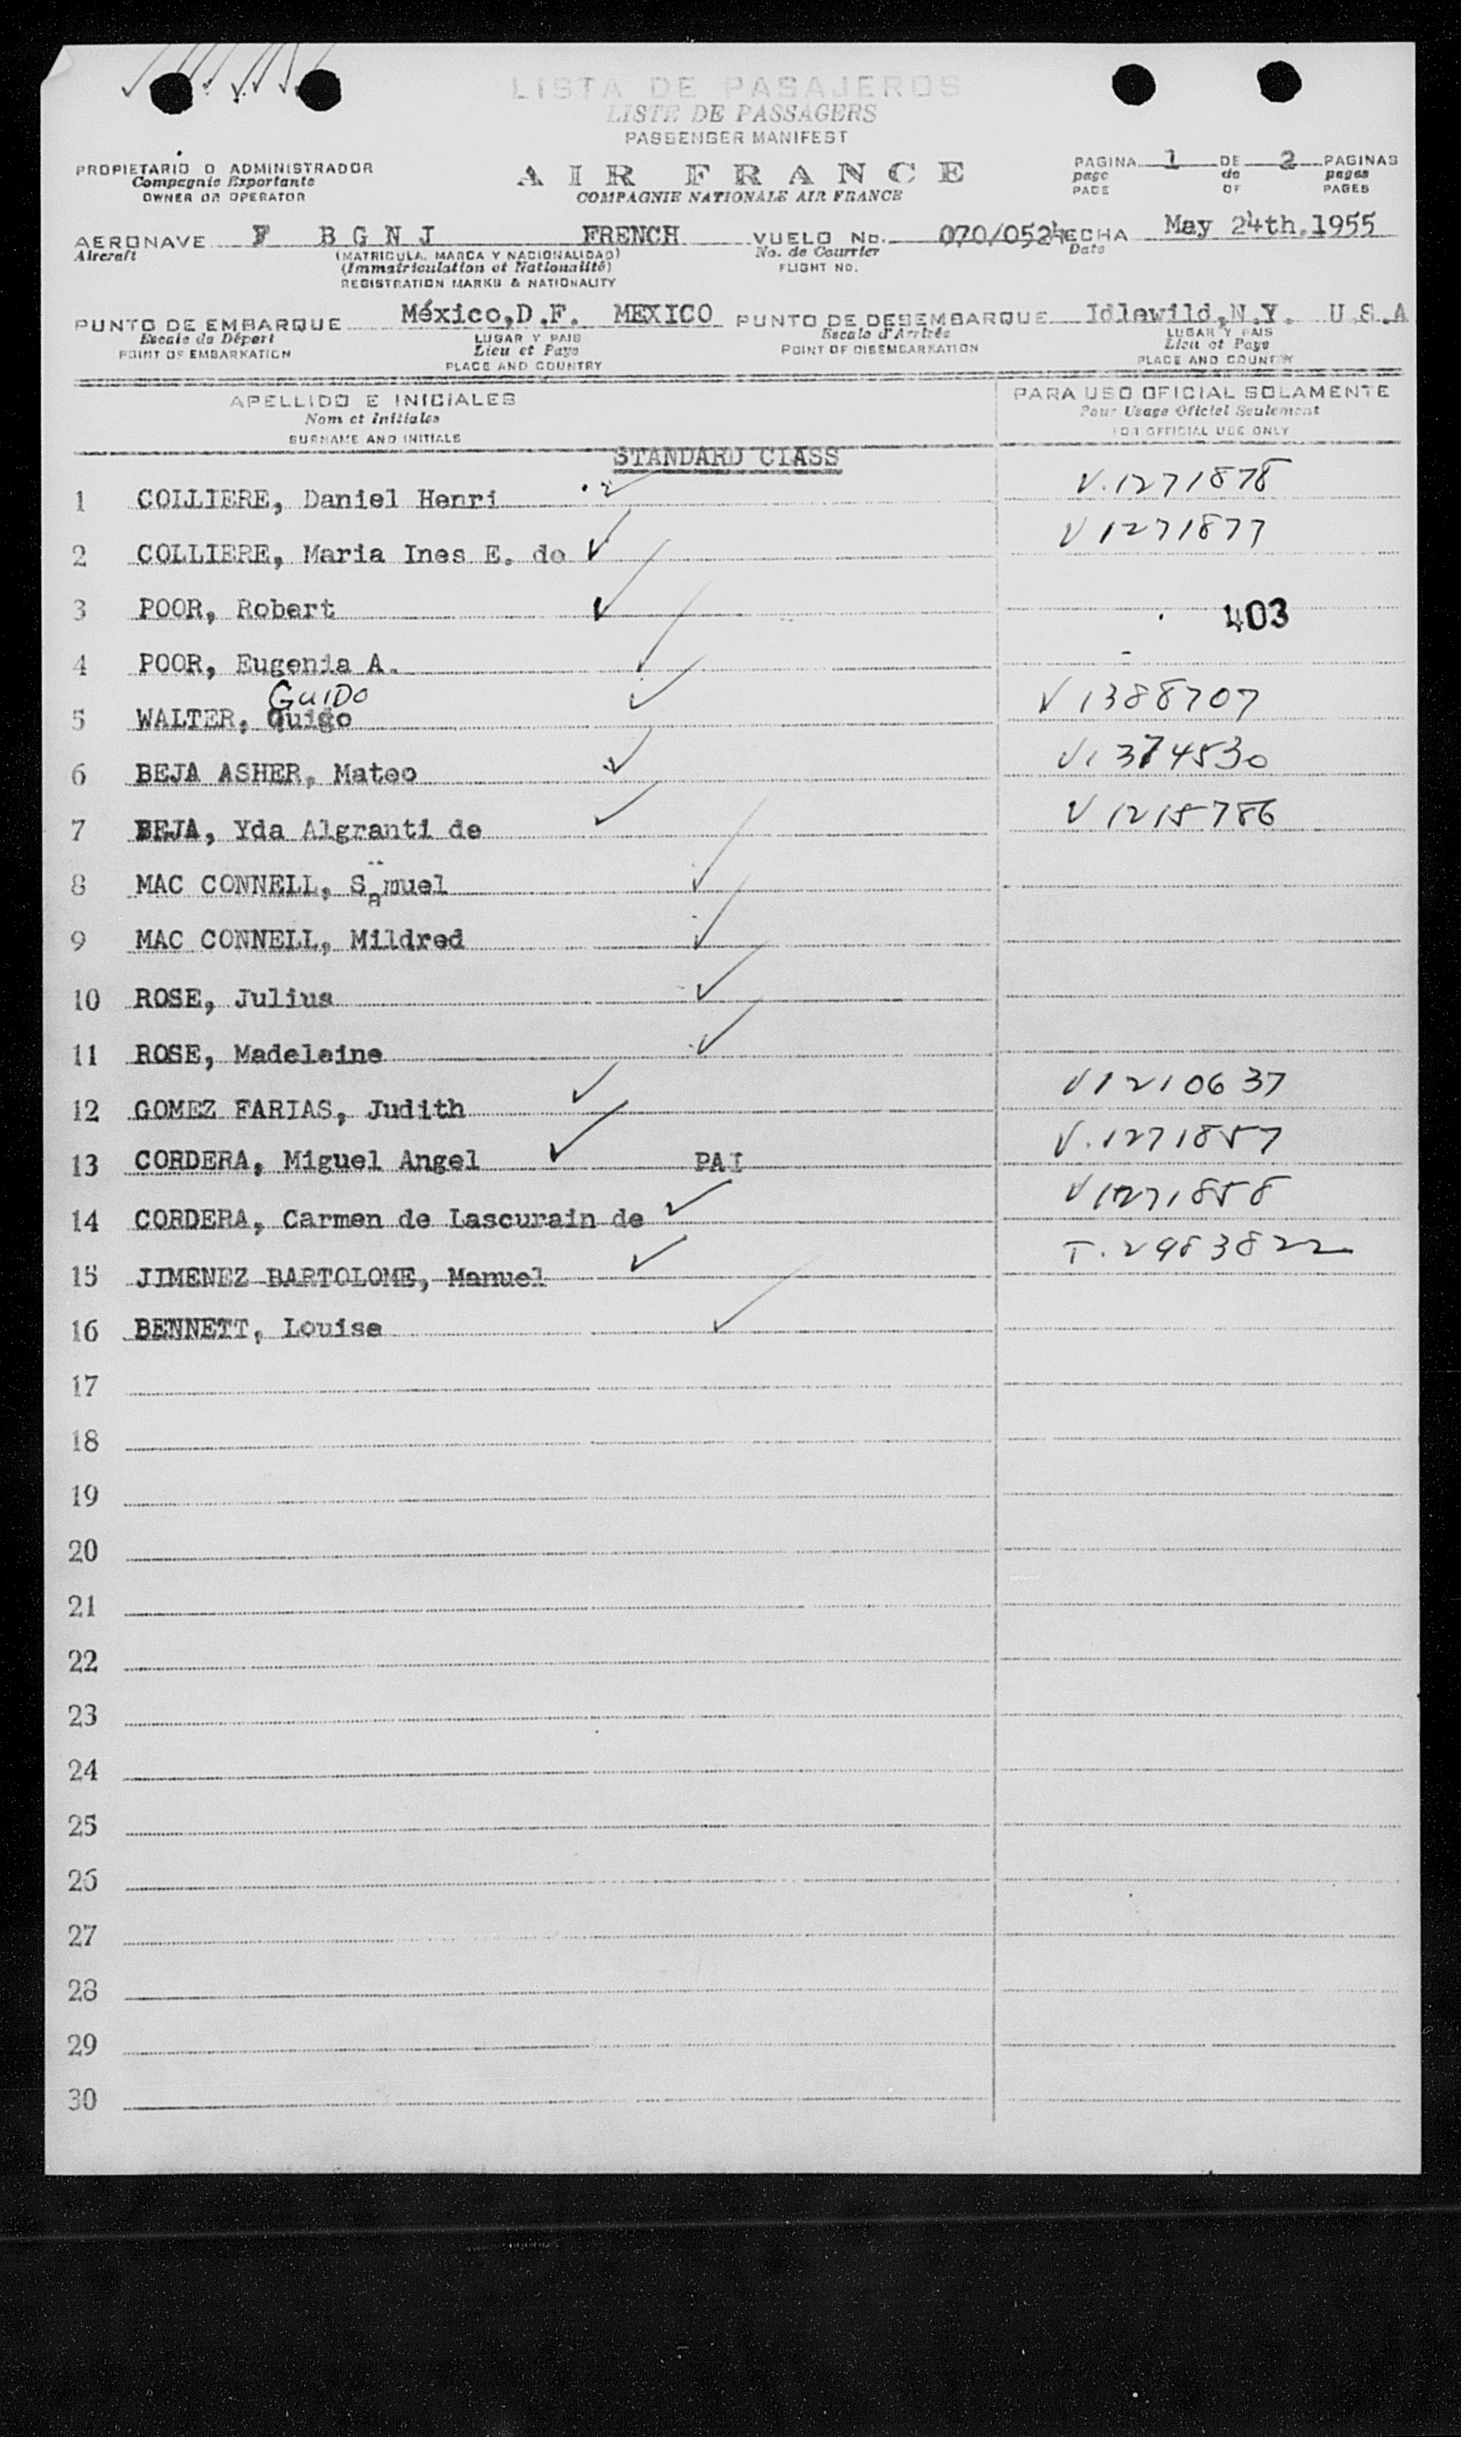 LISTA DE PASAJEROS
LISTE DE PASSAGERS
PASSENGER MANIFEST
PROPIETARIO O ADMINISTRADOR
Compagnie Exportante
OWNER OR OPERATOR
AIR FRANCE
COMPAGNIE NATIONALE AIR FRANCE
PAGINA 1 DE 2 PAGINAS
page de pages
PAGE OF PAGES
AERONAVE F BGNJ FRENCH VUELO No. 070/0524 FECHA May 24th.1955
Aircraft (MATRICULA, MARCA Y NACIONALIDAD) No. de Courrier Date
(Immatriculation et Nationalité) FLIGHT NO.
REGISTRATION MARKS & NATIONALITY
PUNTO DE EMBARQUE México,D.F. MEXICO PUNTO DE DESEMBARQUE Idlewild,N.Y. U.S.A
Escale de Départ LUGAR Y PAIS Escale d'Arrivée LUGAR Y PAIS
POINT OF EMBARKATION Lieu et Pays POINT OF DISEMBARKATION Lieu et Pays
PLACE AND COUNTRY PLACE AND COUNTRY
APELLIDO E INICIALES PARA USO OFICIAL SOLAMENTE
Nom et Initiales Pour Usage Oficiel Seulement
SURNAME AND INITIALS FOR OFFICIAL USE ONLY
STANDARD CLASS
1 COLLIERE, Daniel Henri V.1271878
2 COLLIERE, Maria Ines E. de V1271877
3 POOR, Robert 403
4 POOR, Eugenia A.
GUIDO
5 WALTER, Quigo V1388707
6 BEJA ASHER, Mateo V1374530
7 BEJA, Yda Algranti de V1215786
8 MAC CONNELL, Samuel
9 MAC CONNELL, Mildred
10 ROSE, Julius
11 ROSE, Madeleine
12 GOMEZ FARIAS, Judith V1210637
13 CORDERA, Miguel Angel PAI V.1271857
14 CORDERA, Carmen de Lascurain de V1271858
15 JIMENEZ BARTOLOME, Manuel T.2983822
16 BENNETT, Louise
17
18
19
20
21
22
23
24
25
26
27
28
29
30